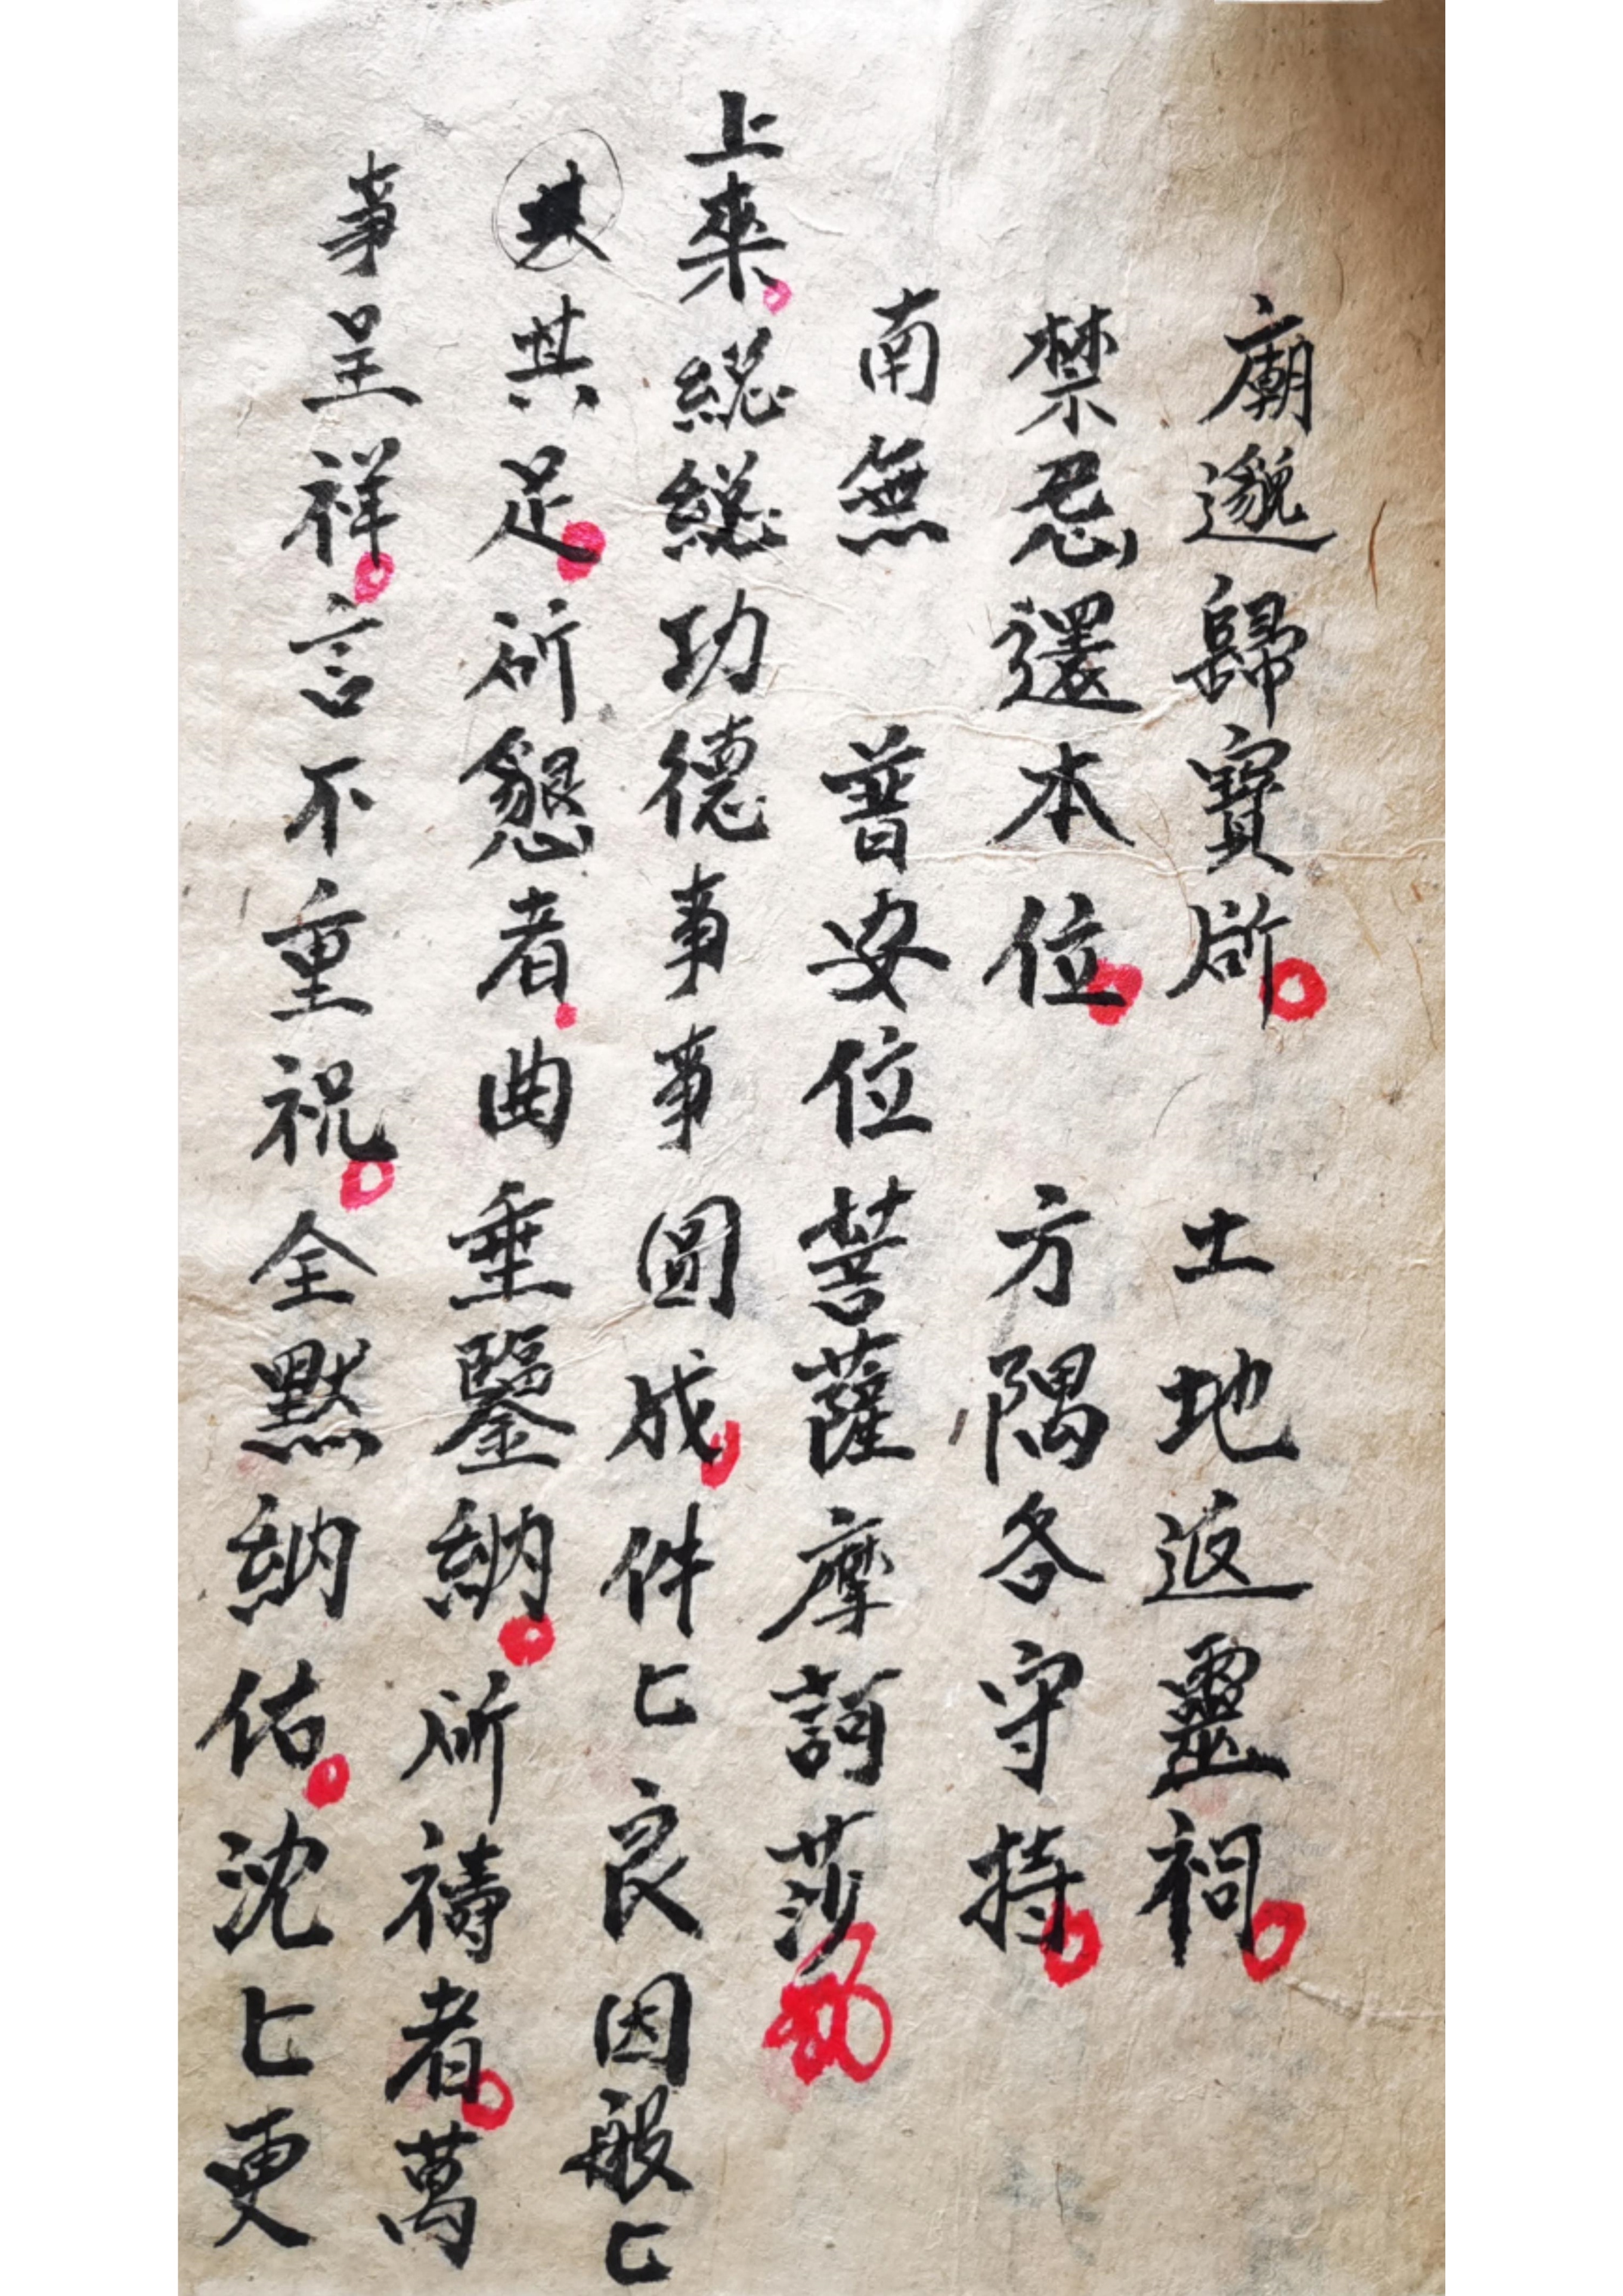 廟邈歸寶所 土地返靈祠
禁忌還本位 方隅各守持
南無 普安位菩薩摩訶莎
上來總總功德事事圓成件匕良因般匕
其足所懇者曲垂鑒納所禱者萬
事呈祥言不重祝全默納佑沈匕更